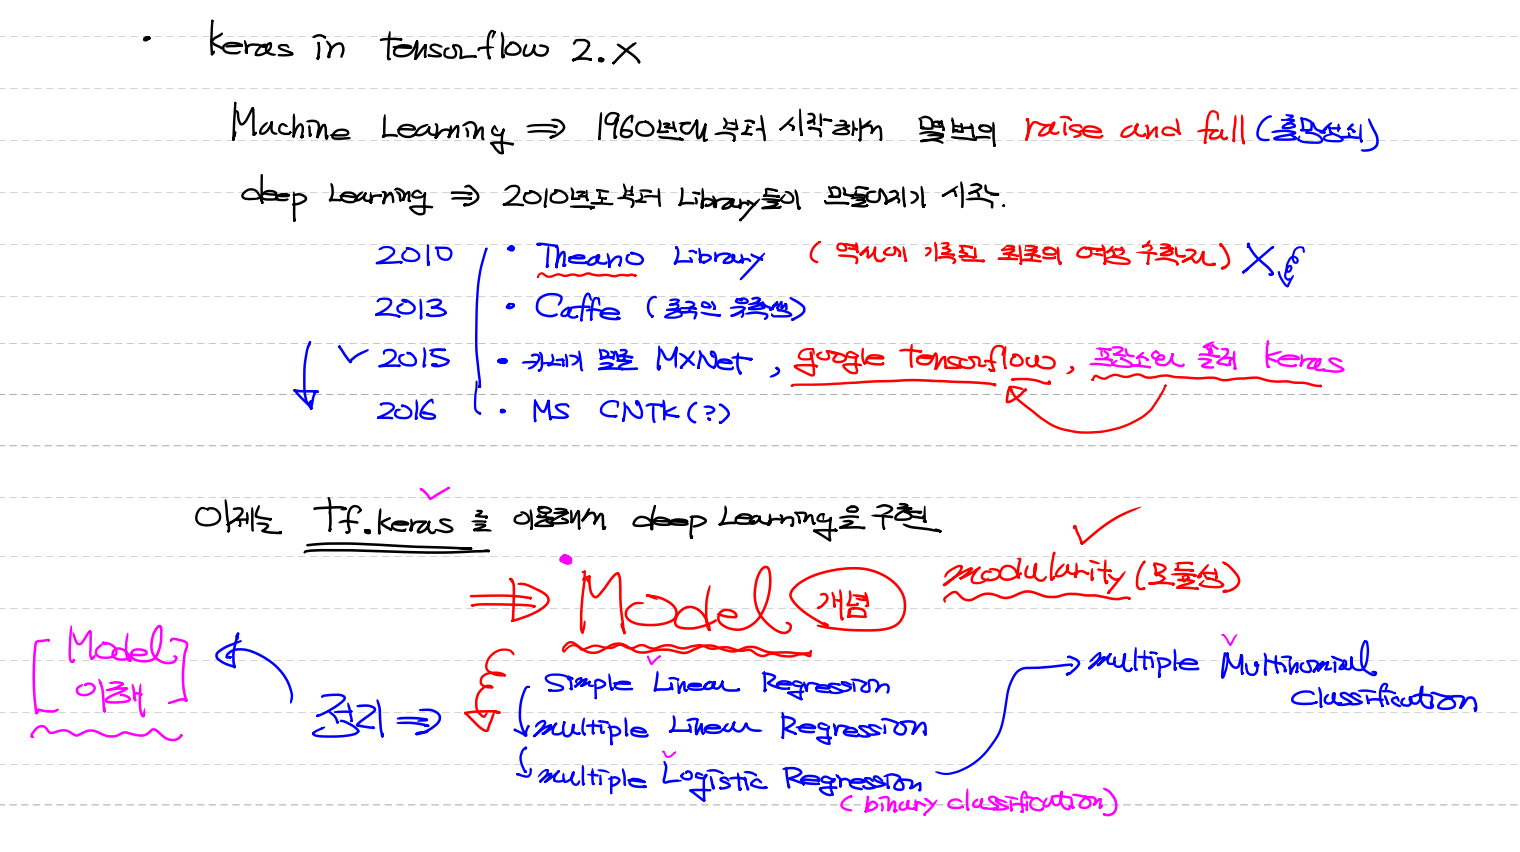 • keras in tensorflow 2.x
Machine Learning ⇒ 1960년대부터 시작해서 몇번의 raise and fall (흥망성쇠)
deep Learning ⇒ 2010년도부터 Library들이 만들어지기 시작.
2010 • Theano Library (역사에 기록된 최초의 여성 수학자) X
2013 • Caffe (중국인 유학생)
✓ 2015 • 카네기 멜론 MXNet, google tensorflow, 프랑소와 숄레 keras
2016 • MS CNTK(?)
이제는 tf.keras를 이용해서 deep Learning을 구현
⇒ Model 개념 modularity (모듈성)
[Model 이해]
simple Linear Regression
정리 ⇒ multiple Linear Regression
multiple Logistic Regression
(binary classification)
multiple Multinomial
classification